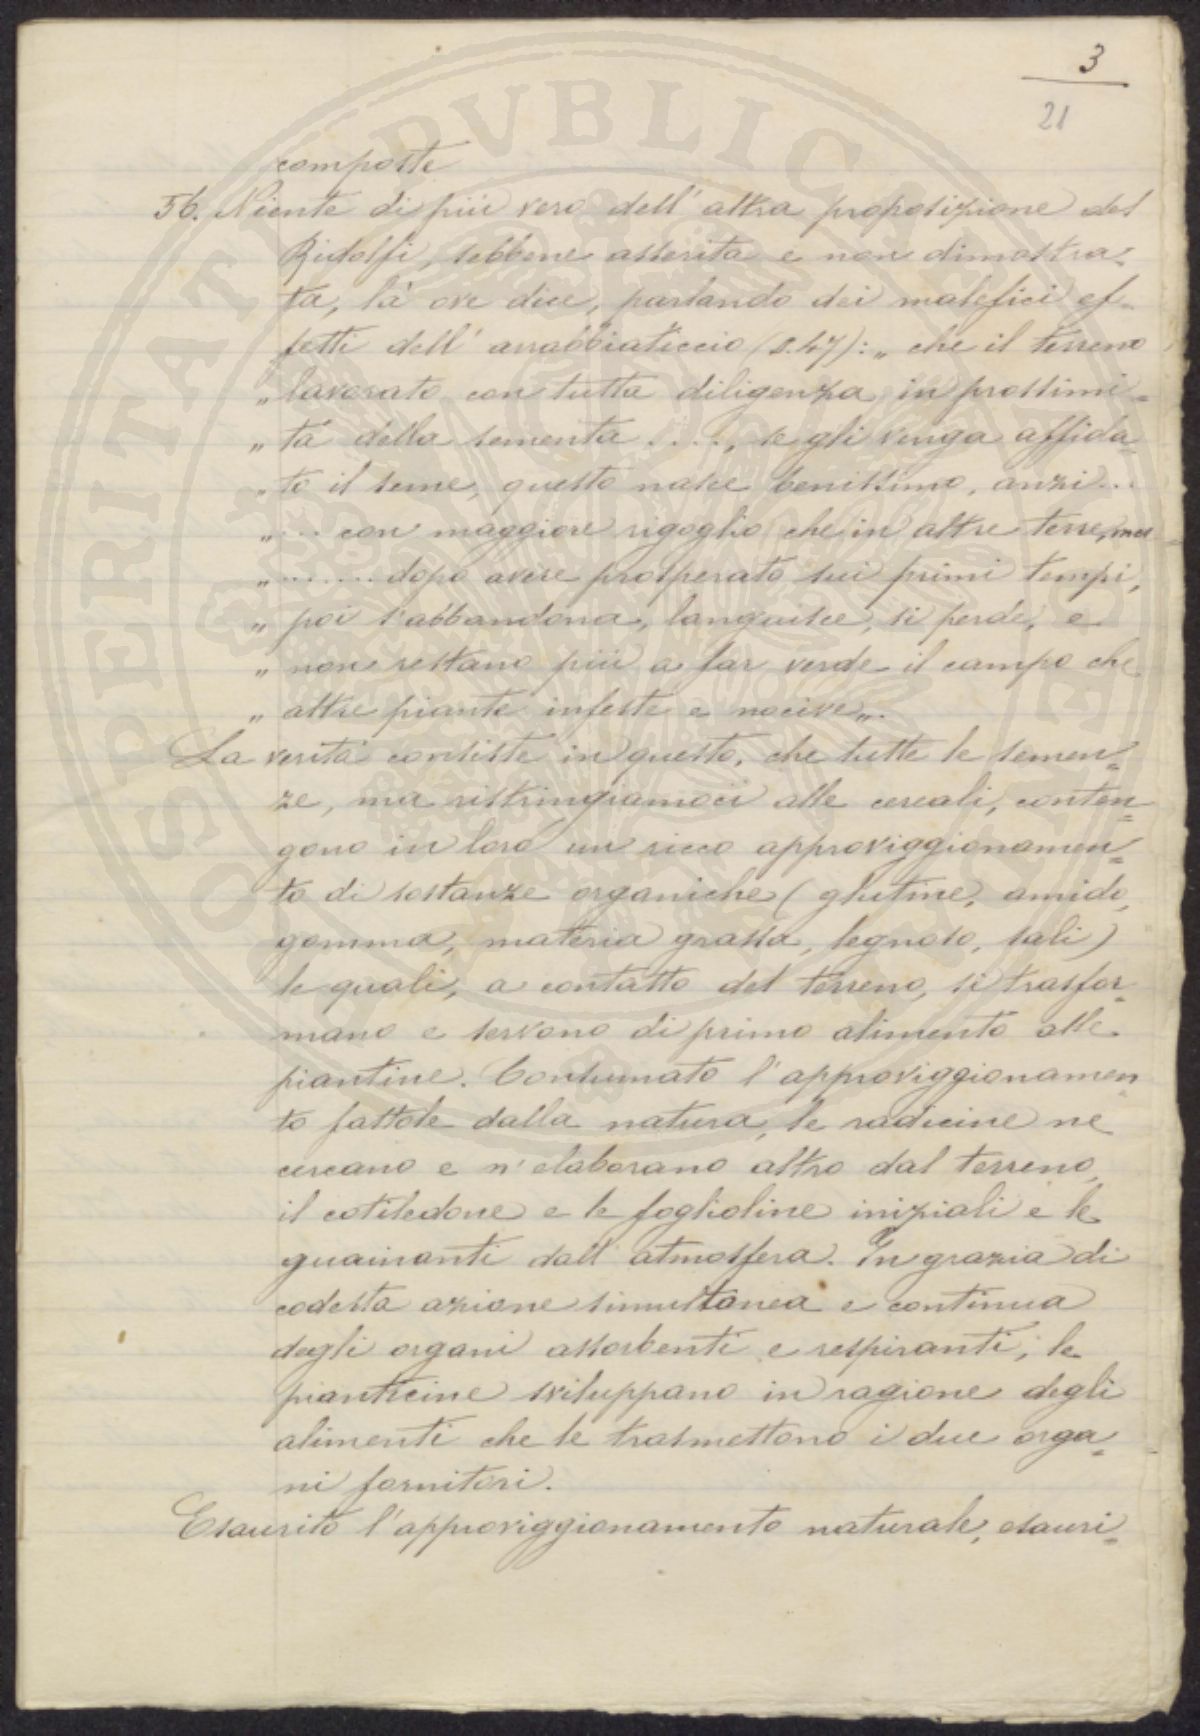 3
21
composte
56. Niente di più vero dell'altra proposizione del
Ridolfi, sebbene asserita e non dimostra-
ta, là ove dice, parlando dei malefici ef-
fetti dell'arrabbiaticcio (§.47): „ che il terreno
„ lavorato con tutta diligenza in prossimi=
„ tà della sementa . . . ., se gli venga affida=
„ to il seme, questo nasce benissimo, anzi...
„ ... con maggiore rigoglio che in altre terre, ma
„ ....... dopo avere prosperato sui primi tempi,
„ poi s'abbandona, languisce, si perde, e
„ non restano più a far verde il campo che
„ altre piante infeste e nocive„.
La verità consiste in questo, che tutte le semen=
ze, ma ristringiamoci alle cereali, conten=
gono in loro un ricco approviggionamen=
to di sostanze organiche (glutine, amido,
gomma, materia grassa, legnoso, sali)
le quali, a contatto del terreno, si trasfor=
mano e servono di primo alimento alle
piantine. Consumato l'approviggionamen=
to fattole dalla natura, le radicine ne
cercano e n'elaborano altro dal terreno,
il cotiledone e le foglioline iniziali e le
guainanti dall'atmosfera. In grazia di
codesta azione simultanea e continua
degli organi assorbenti e respiranti, le
pianticine sviluppano in ragione degli
alimenti che le trasmettono i due orga=
ni fornitori.
Esaurito l'approviggionamento naturale, esauri=
PUBLICAE
PROSPERITATI